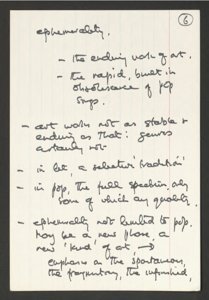 6
ephemerality.
- the enduring work of art.
- the rapid, built in
obsolescence of pop
songs.
- art work not as stable &
enduring as that: genres
certainly not
- in lit, a selective 'tradition'
- in pop, the full spectrum only
some of which any quality.
- ephemerality not limited to pop.
May be a new phase a
new 'kind' of art →
emphasis on the spontaneous,
the fragmentary, the unfinished,